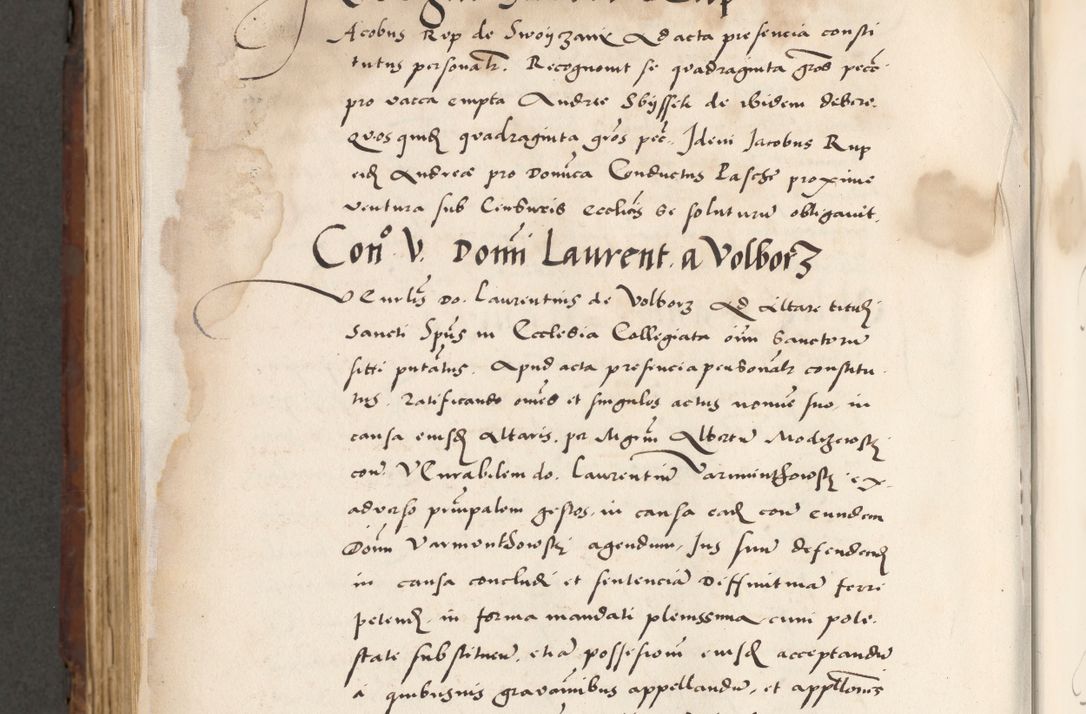 Jacobus Rup de Swoyzanÿ Ad acta presencia consti
tutus personalr. Recognovit se quadraginta gros pecc
pro vacca empta Andree Sbyssek de ibidem debere.
Quos quidz quadraginta gros pec. Idem Jacobus Rup
eidz Andree pro Domica Conductus Pasche proxime
ventura sub Censuris Ecclicis se soluturu obligavit.
Con° V. Domi Laurent. a Volborz
Venrlis Do. Laurentius de Volborz Ad Altare tituli
Sancti Spus in Ecclesia Collegiata oim Sanctoru
siti putatus. Apud acta presencia personalr constitu
tus. Ratificando omes et singulos actus nomie suo in
causa eiusdz Altaris. per Mgrm Albertu Modrzewskj
con Venerabilem do. Laurentiu Varmunthowskj ex
adverso principalem gestos. in causa eadz con eundem
Dom Varmonthowskj agendum, Jus suu defendendz
in causa concludj et sentencia Diffinitiva ferri
petendz. in forma mandati plenissima cum pote
state substituen. etia possesiom eiusdz acceptandu
a quibusvis gravaminibus appellandu. et appllones